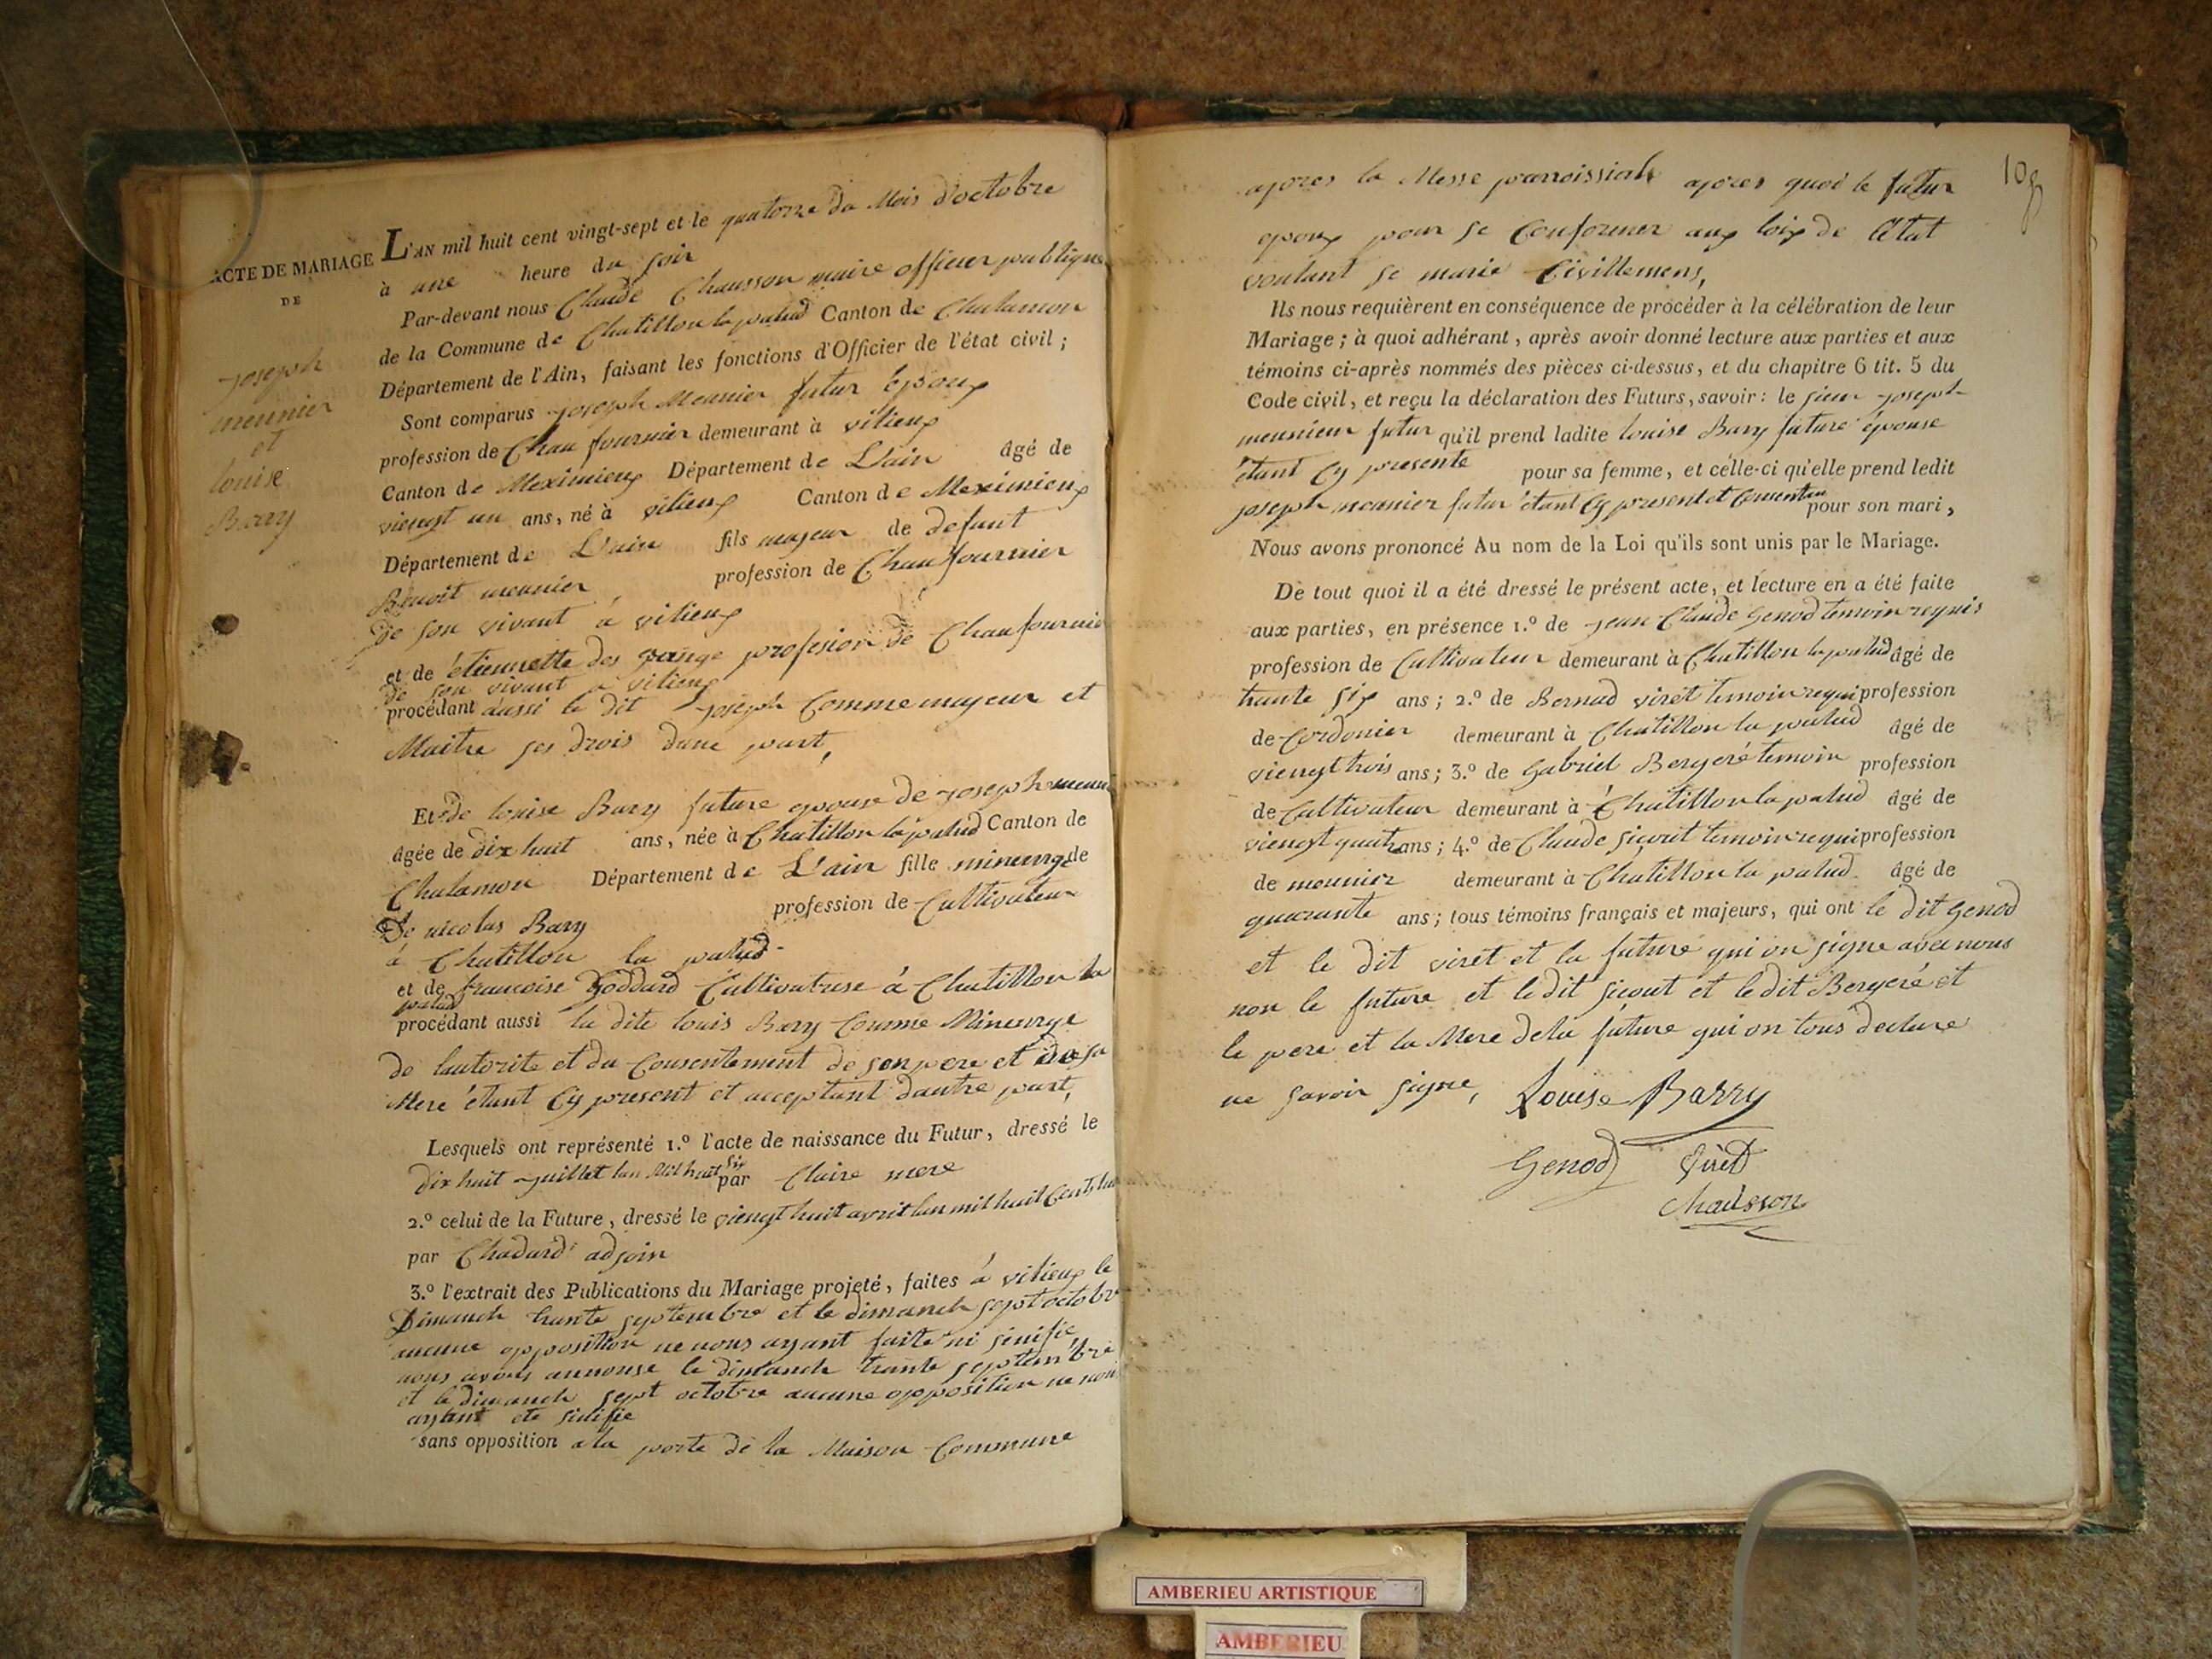 ACTE DE MARIAGE
DE
joseph
meunier
et
louise
Bary
L'AN mil huit cent vingt-sept et le quatorze du Mois d'octobre
à une heure du soir
Par-devant nous Claude Chausson maire officier publique
de la Commune de Chatillon la palud Canton de Chalamon
Département de l'Ain, faisant les fonctions d'Officier de l'état civil ;
Sont comparus joseph Meunier futur époux
profession de Chau fournier demeurant à vilieux
Canton de Meximieux Département de L'ain âgé de
viengt un ans, né à vilieux Canton de Meximieux
Département de L'ain fils majeur de defunt
Benoit meunier profession de Chaufournier
de son vivant à vilieux
et de étiennette des grange profesion de Chaufournie
de son vivant à vilieux
procédant aussi le dit joseph Comme majeur et
Maitre ses drois dune part,
Et de louise Bary future epouse de joseph meuni
âgée de dix huit ans, née à Chatillon la palud Canton de
Chalamon Département de L'ain fille mineurge de
De nicolas Bary profession de Cultivateur
à Chatillon la palud
et de francoise Goddard Cultivatrise à Chatillon la
palud
procédant aussi la dite louis Bary Comme Mineurge
de lautorite et du Consentement de son pere et de sa
Mere étant Cy present et acceptant dautre part,
Lesquels ont représenté 1.º l'acte de naissance du Futur, dressé le
dix huit juillet lan Mil huit six par Claire mere
2.º celui de la Future, dressé le viengt huit avril lan mil huit Cent
par Chadard adjoin
3.º l'extrait des Publications du Mariage projeté, faites à vilieux le
Dimanch trante septembre et le dimanch sept octobr
aucune opposition ne nous ayant faite ni sinifie
nous avons annonse le dimanch trante septembre
et le dimanch sept octobre aucune opposition ne nou
ayant ete sinifie
sans opposition a la porte de la Maison Commune
108
apres la Messe parroissiale apres quoi le futur
epoux pour se Conformer aux loix de l'Etat
voulant se marie Civillemens,
Ils nous requièrent en conséquence de procéder à la célébration de leur
Mariage ; à quoi adhérant, après avoir donné lecture aux parties et aux
témoins ci-après nommés des pièces ci-dessus, et du chapitre 6 tit. 5 du
Code civil, et reçu la déclaration des Futurs, savoir : le sieur joseph
meunieur futur qu'il prend ladite louise Bary future épouse
étant Cy presente pour sa femme, et celle-ci qu'elle prend ledit
joseph meunier futur étant Cy present et Consentan pour son mari,
Nous avons prononcé Au nom de la Loi qu'ils sont unis par le Mariage.
De tout quoi il a été dressé le présent acte, et lecture en a été faite
aux parties, en présence 1.º de jean Claude Genod temoin requis
profession de Cultivateur demeurant à Chatillon la palud âgé de
trante six ans ; 2.º de Bernad viret temoin requi profession
de Cordonier demeurant à Chatillon la palud âgé de
viengt trois ans ; 3.º de Gabriel Bergeré temoin profession
de Cultivateur demeurant à Chatillon la palud âgé de
viengt quatr ans ; 4.º de Claude sicout temoin requi profession
de meunier demeurant à Chatillon la palud âgé de
quarante ans ; tous témoins français et majeurs, qui ont le dit Genod
et le dit viret et la future qui on signe avec nous
non le future et le dit sicout et le dit Bergeré et
le pere et la Mere de la future qui on tous declare
ne savoir signe, Louise Barry
Genod Viret
Chausson
AMBERIEU ARTISTIQUE
AMBERIEU